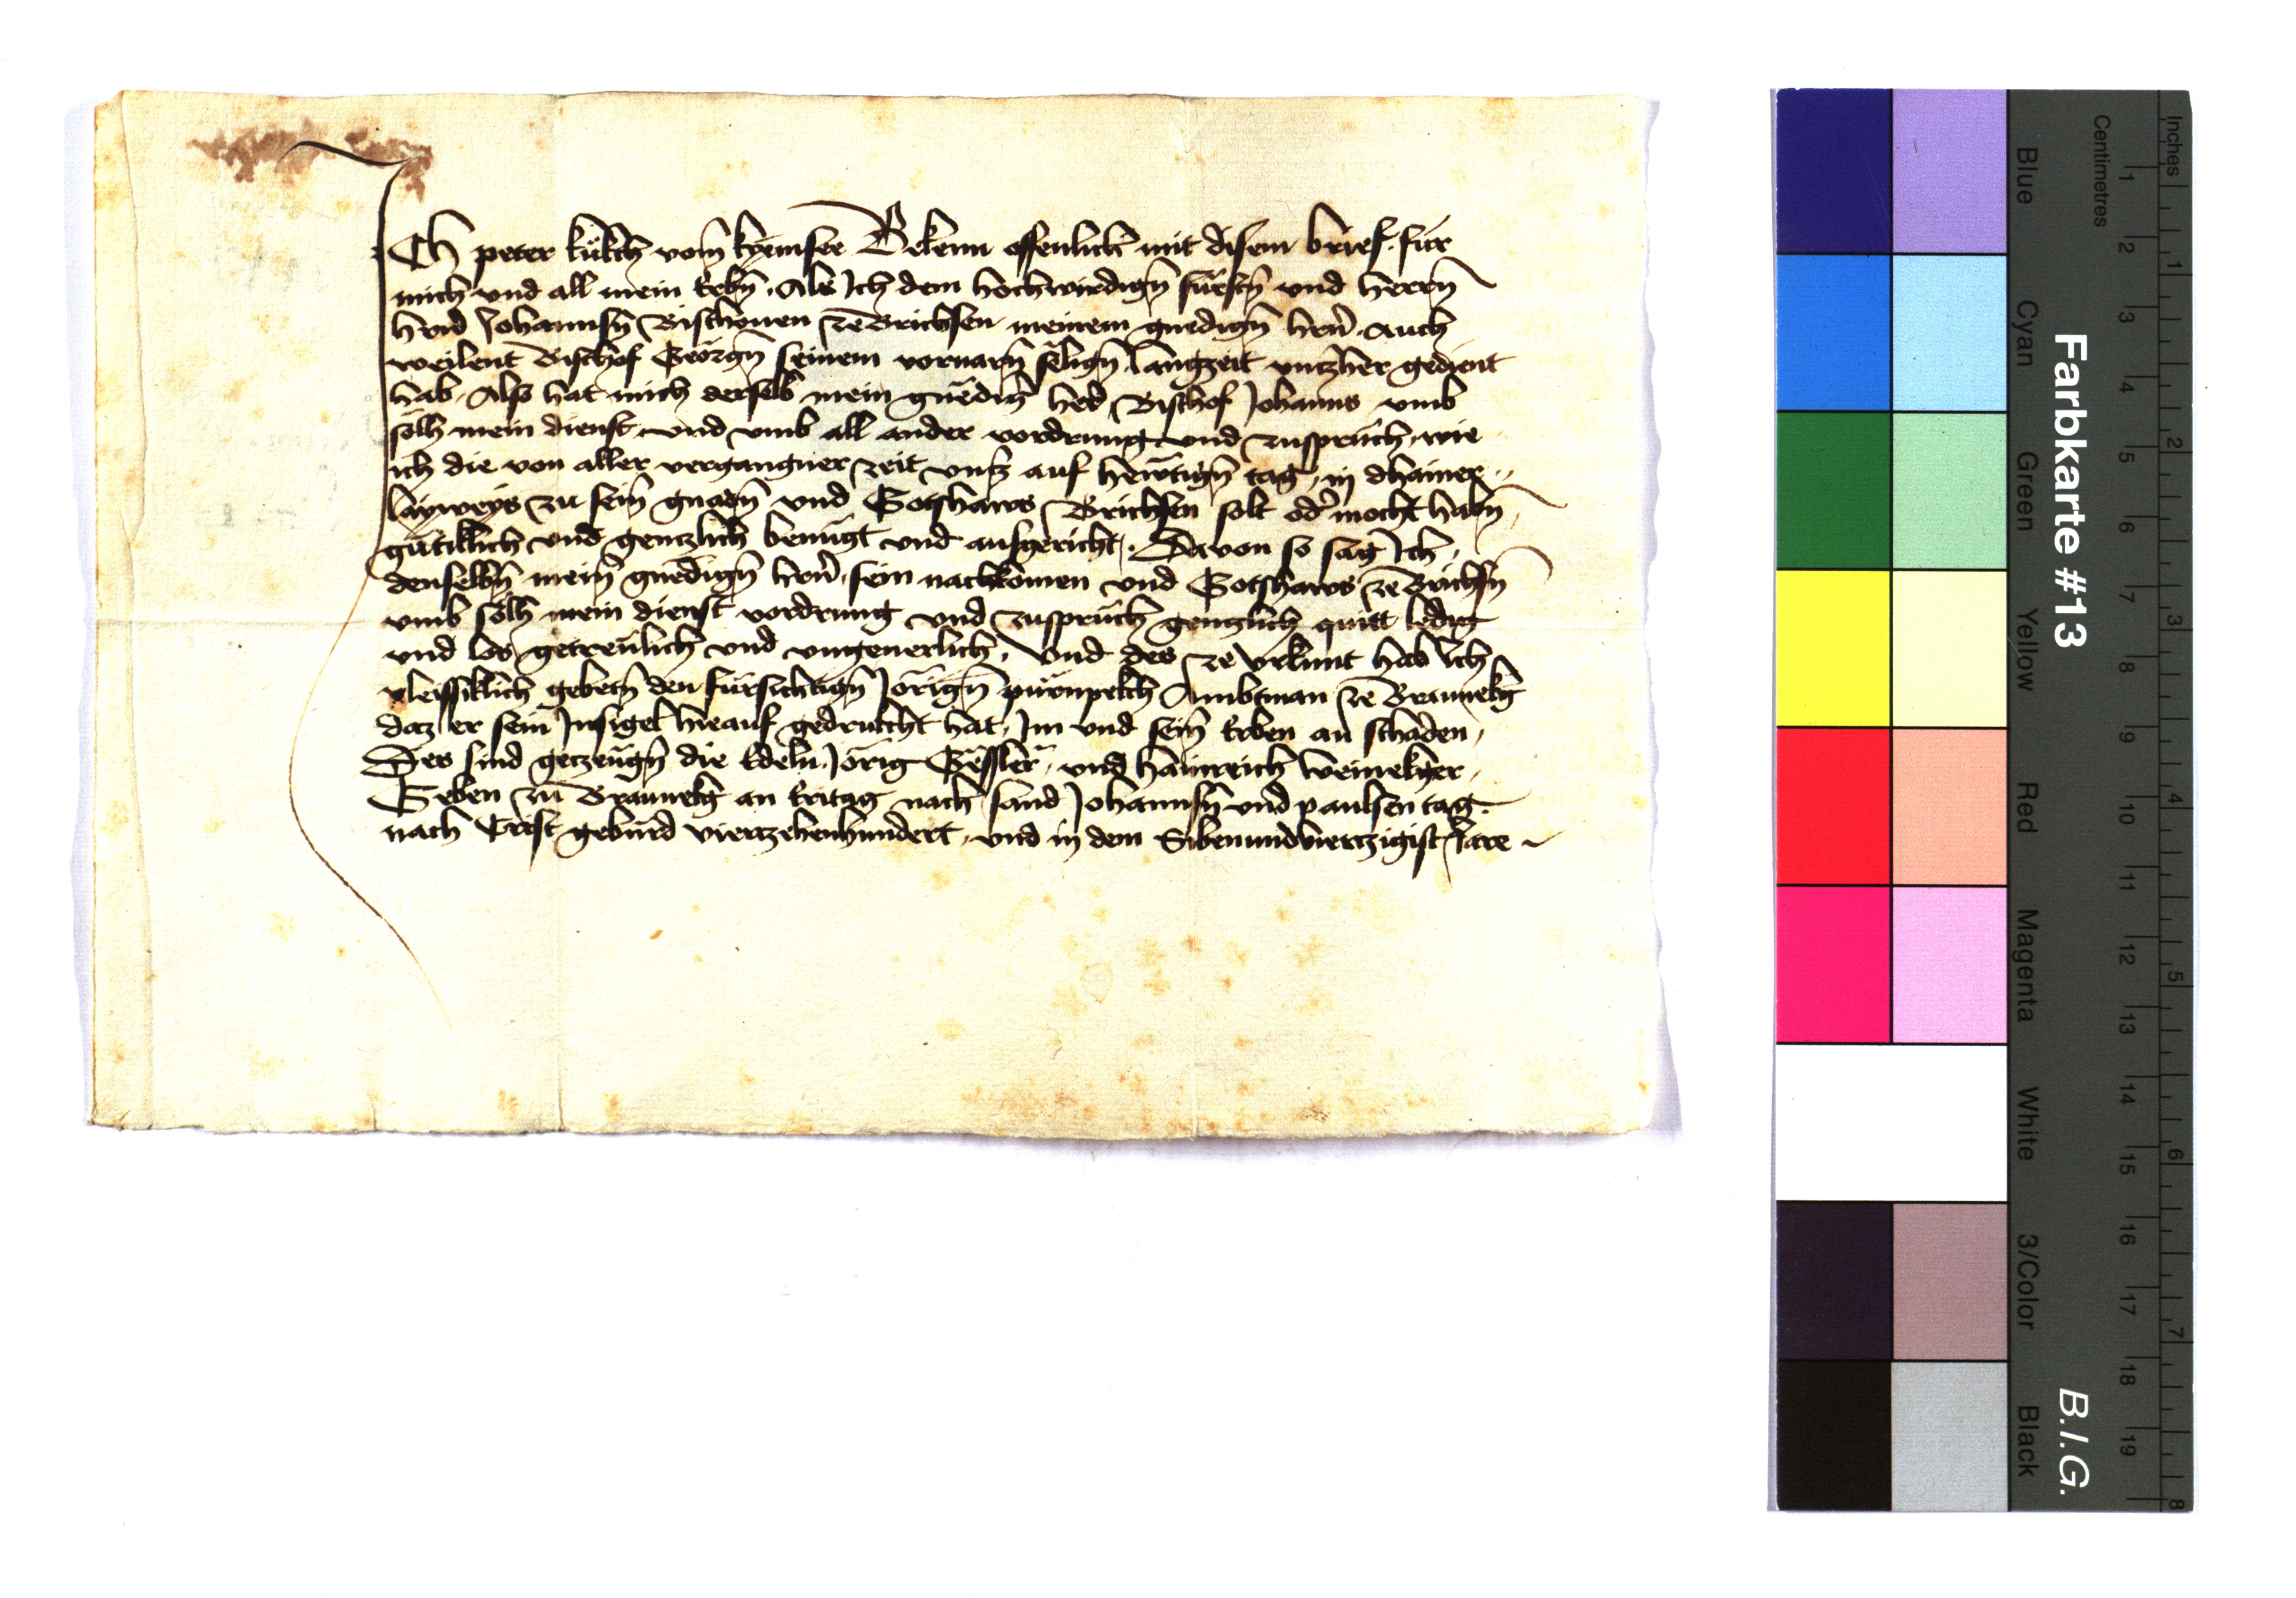 Ich peter kükch vom kyemsee Bekenn offenlich mit disem brief. für
mich vnd all mein Erbn̄. Als Ich dem hochwirdign̄ fürstn̄ vnd herrn̄
hern̄ Johannsn̄ Bischouen ze Brichsen meinem gnedign̄ hrn̄. auch
weilent Bischof Georgn̄ seinem voruarn̄ sëlign̄, langzeit vntzher gedient
hab. Also hat mich derselb mein gnëdiḡ her̄ Bischof Johanns vmb
sölh mein dienst, vnd vmb all ander vordrung vnd zusprüch, wie
ich die von aller vergangner zeit vnfz auf hewtign̄ tag, in dhainer
layweys zu sein̄ gnadn̄ vnd Gotshaws Brichsen solt od̄ mocht habn̄
gütiklich vnd gentzlich benügt vnd ausgericht. Dauon so sag Ich
denselbn̄ mein̄ gnëdign̄ hrn̄. sein nachkomen vnd Gotshaws ze Brichsn̄
vmb sölh mein dienst vordrung vnd zusprüch gentzlich quitt ledig
vnd los, getreulich vnd vngeuerlich. Vnd des ze vrkunt hab Ich
vleissiklich gebetn̄ den fürsichtign̄ Jörign̄ Ambtman ze Braunekg
daz er sein Insigel hieauf gedruckht hat, Im vnd sein̄ Erben an schaden,
Des sind getzeugn̄ die Edeln Jörig Gëssler, vnd Hainreich Weinekger,
Geben zu Braunekg an Eritag nach sand Johannsn̄ vnd paulsen tag.
nach Crist gebürd viertzehenhundert, vnd in dem Sibenundviertzigist Jare
Farbkarte #13
B.I.G.
Blue Cyan Green Yellow Red Magenta White 3/Color Black
Centimetres
1 2 3 4 5 6 7 8 9 10 11 12 13 14 15 16 17 18 19
Inches
1 2 3 4 5 6 7 8